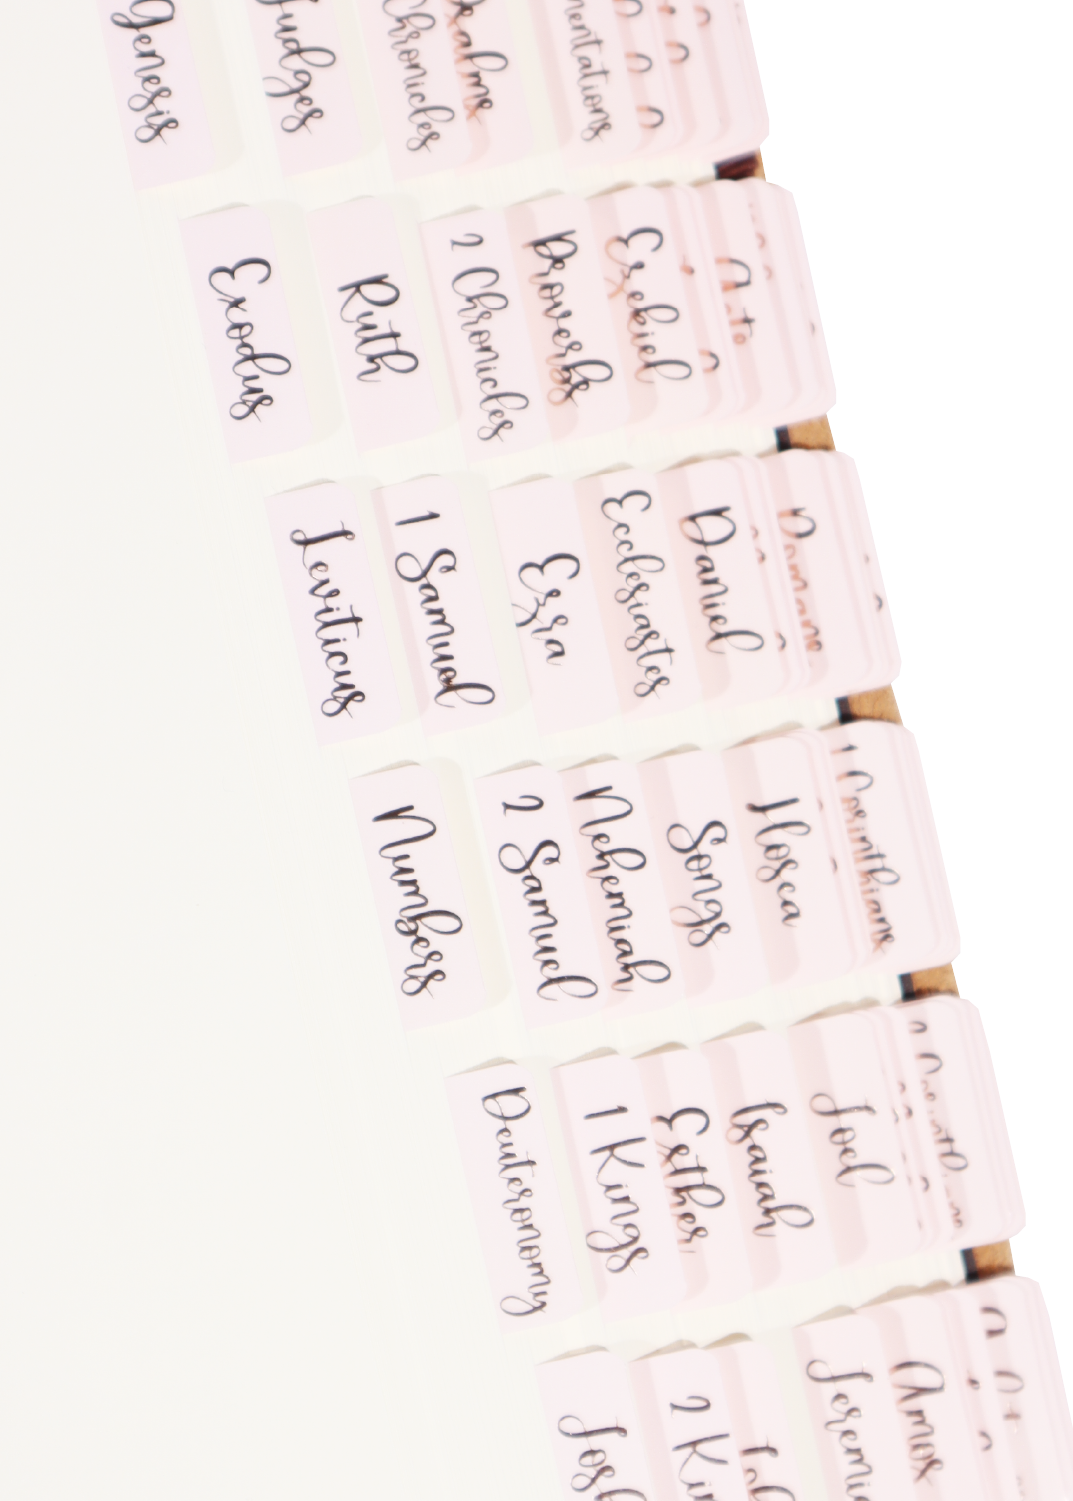 Genesis
Judges
Chronicles
Psalms
Exodus
Ruth
2 Chronicles
Proverbs
Ezekiel
Acts
Leviticus
1 Samuel
Ezra
Ecclesiastes
Daniel
Romans
Numbers
2 Samuel
Nehemiah
Songs
Hosea
1 Corinthians
Deuteronomy
1 Kings
Esther
Isaiah
Joel
2 Corinthians
2 Ki
Amos